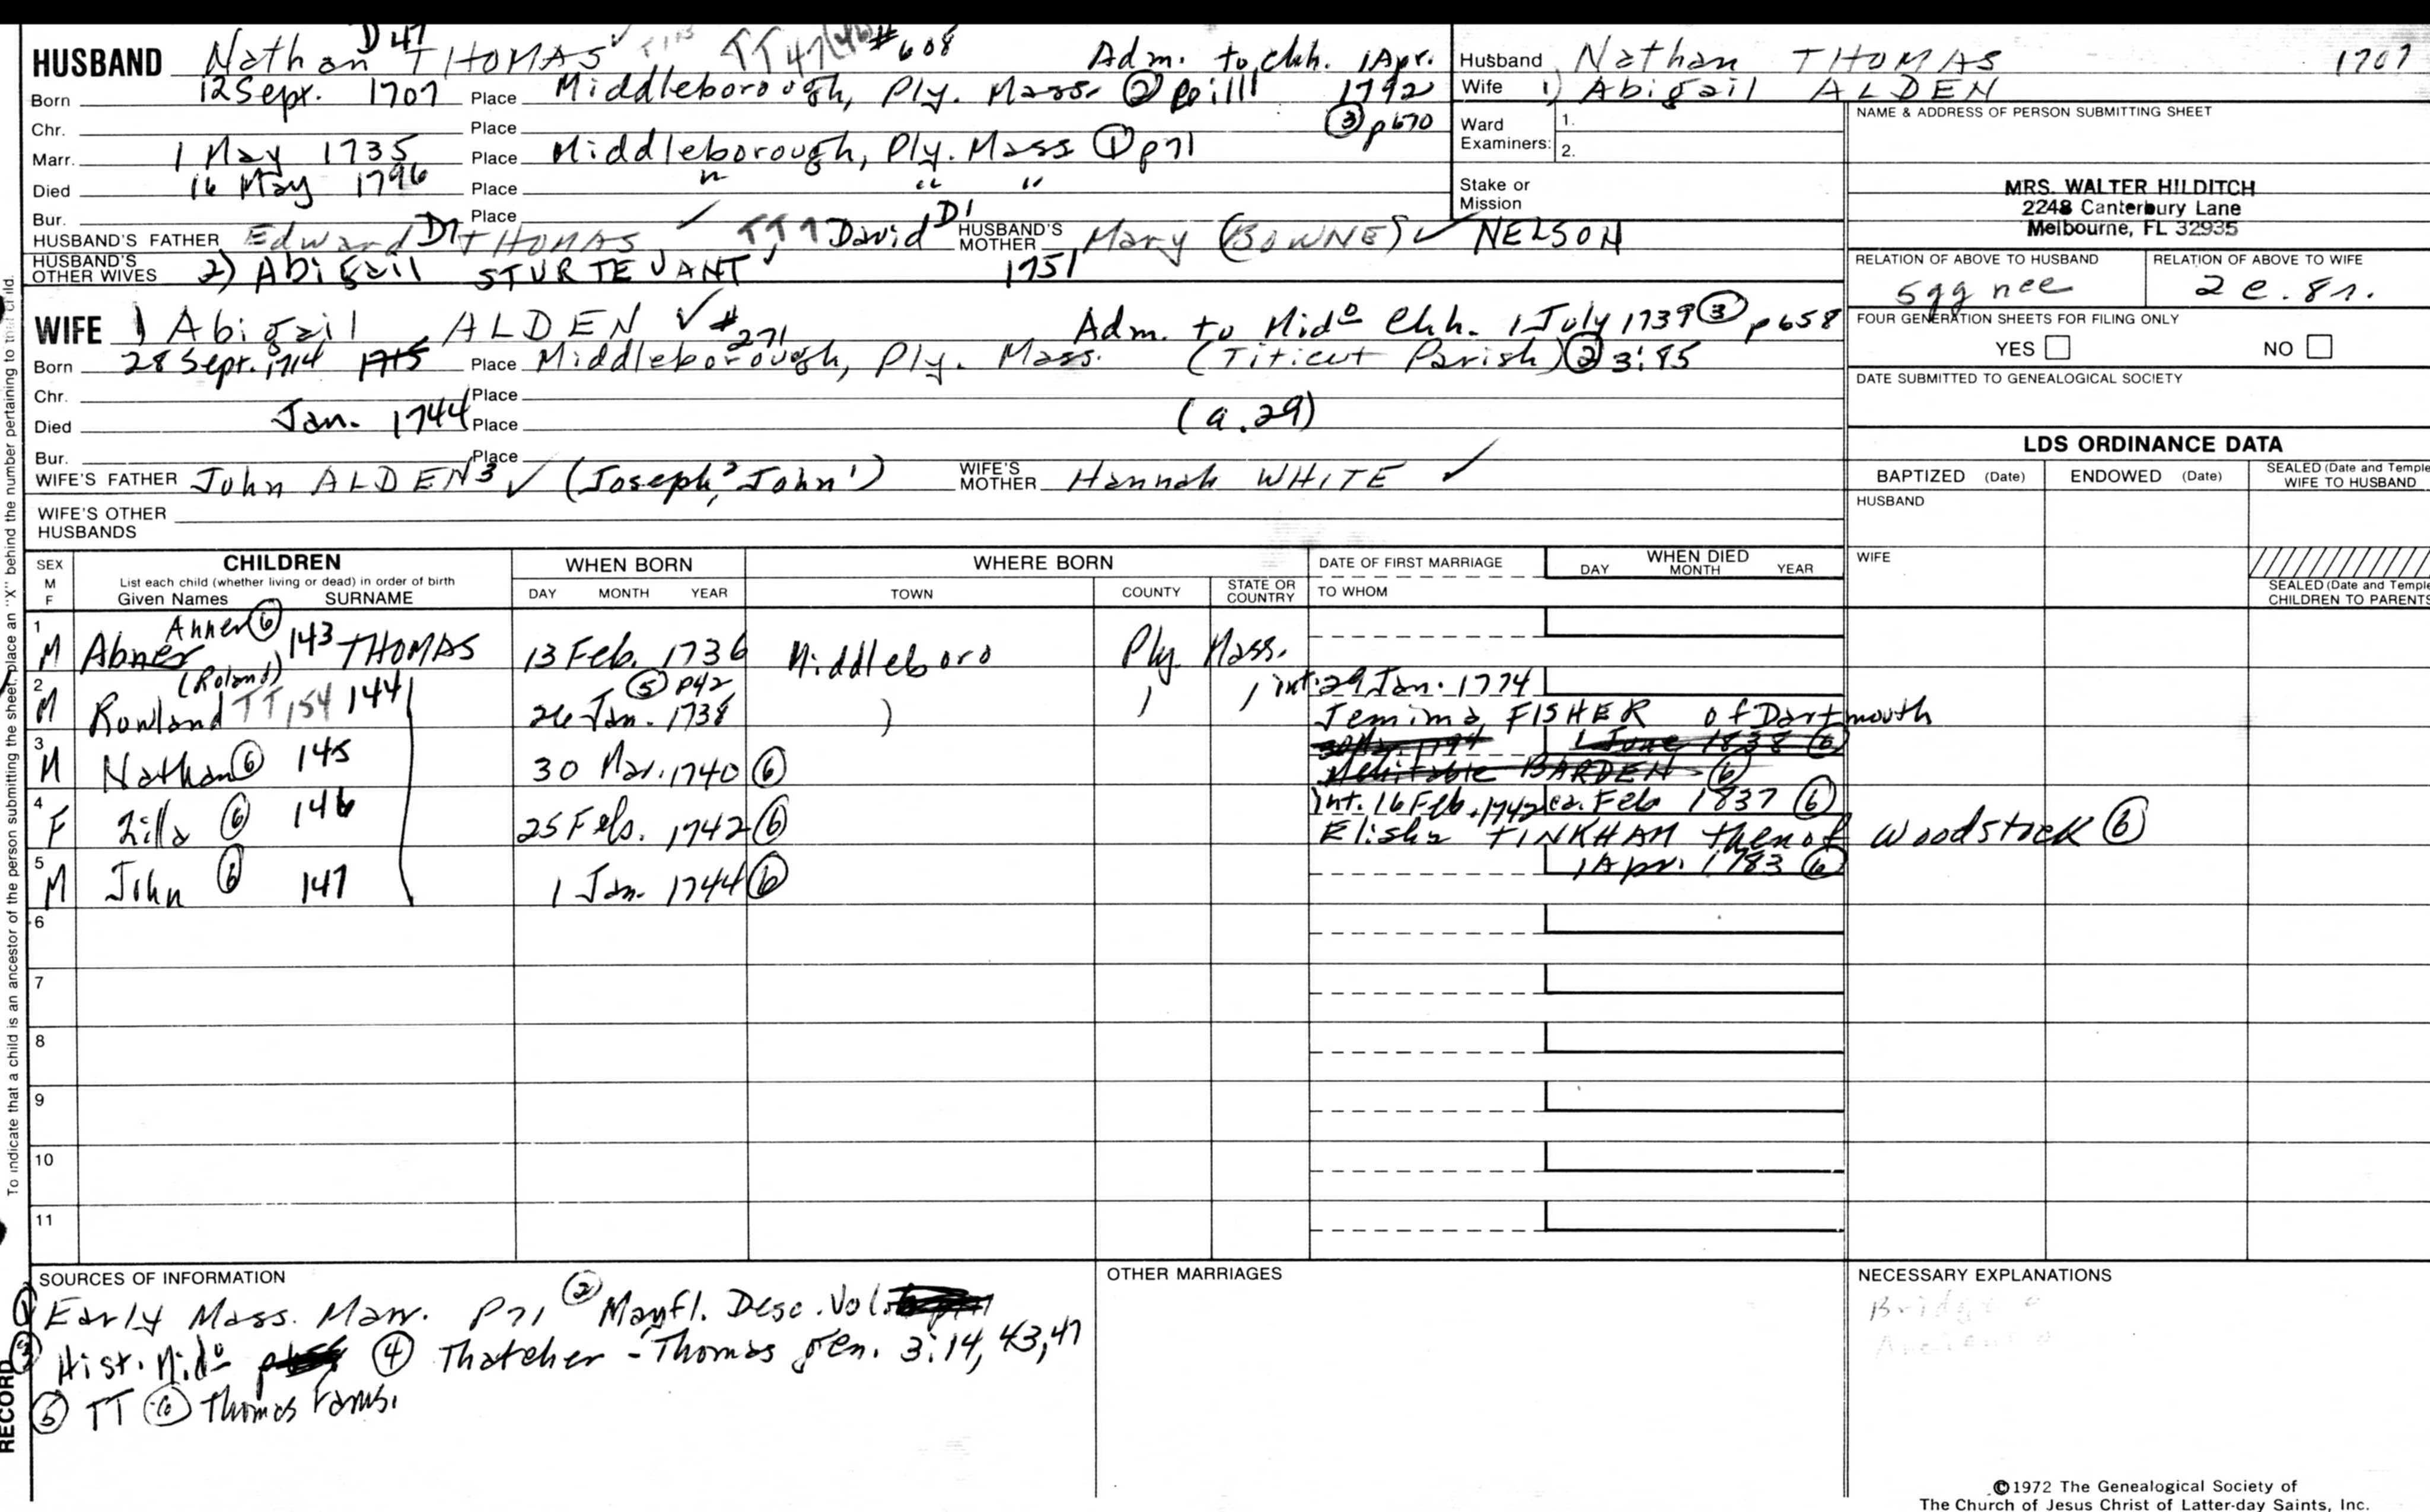 D47
HUSBAND Nathan THOMAS TT47(46) #608 Adm. to chh. 1 Apr. 1742
Born 12 Sept. 1707 Place Middleborough, Ply. Mass. ②
③ p670
Chr. Place
Marr. 1 May 1735 Place Middleborough, Ply. Mass ① p71
Died 16 May 1796 Place " " "
Bur. Place
HUSBAND'S FATHER Edward D7 THOMAS ✓ TT7 David D1 HUSBAND'S MOTHER Mary (BOWNE) ✓ NELSON
HUSBAND'S OTHER WIVES 2) Abigail STURTEVANT 1751
Husband Nathan THOMAS 1707
Wife 1) Abigail ALDEN
Ward Examiners: 1.
2.
Stake or Mission
NAME & ADDRESS OF PERSON SUBMITTING SHEET
MRS. WALTER HILDITCH
2248 Canterbury Lane
Melbourne, FL 32935
RELATION OF ABOVE TO HUSBAND RELATION OF ABOVE TO WIFE
5gg nee 2 c. 8r.
FOUR GENERATION SHEETS FOR FILING ONLY
YES NO
DATE SUBMITTED TO GENEALOGICAL SOCIETY
WIFE 1) Abigail ALDEN ✓ #271 Adm. to Mido Chh. 1 July 1739 ③ p658
Born 28 Sept. 1714 1715 Place Middleborough, Ply. Mass. (Titicut Parish) ② 3:85
Chr. Place
Died Jan. 1744 Place (a. 29)
Bur. Place
WIFE'S FATHER John ALDEN3 ✓ (Joseph2, John1) WIFE'S MOTHER Hannah WHITE ✓
WIFE'S OTHER HUSBANDS
LDS ORDINANCE DATA
BAPTIZED (Date) ENDOWED (Date) SEALED (Date and Temple) WIFE TO HUSBAND
HUSBAND
WIFE
SEALED (Date and Temple) CHILDREN TO PARENTS
SEX M F
CHILDREN
List each child (whether living or dead) in order of birth
Given Names SURNAME
WHEN BORN
DAY MONTH YEAR
WHERE BORN
TOWN COUNTY STATE OR COUNTRY
DATE OF FIRST MARRIAGE
TO WHOM
WHEN DIED
DAY MONTH YEAR
Anner ⑥
1 M Abner 143 THOMAS 13 Feb. 1736 Middleboro Ply. Mass.
(Roland) ⑤ p42 int. 29 Jan. 1774
2 M Rowland TT154 144 26 Jan. 1738 Jemima FISHER of Dartmouth
1 June 1838 ⑥
3 M Nathan ⑥ 145 30 Mar. 1740 ⑥ Mehitable BARDEN ⑥
int. 16 Feb. 1742 ca. Feb 1837 ⑥
4 F Zilla ⑥ 146 25 Feb. 1742 ⑥ Elisha TINKHAM then of Woodstock ⑥
1 Apr. 1783 ⑥
5 M John ⑥ 147 1 Jan. 1744 ⑥
6
7
8
9
10
11
SOURCES OF INFORMATION
① Early Mass. Marr. p71 ② Mayfl. Desc. Vol.
③ Hist. Mido ④ Thatcher-Thomas Gen. 3:14, 43, 47
⑤ TT ⑥ Thomas Fams.
OTHER MARRIAGES
NECESSARY EXPLANATIONS
To indicate that a child is an ancestor of the person submitting the sheet, place an "X" behind the number pertaining to that child.
RECORD
©1972 The Genealogical Society of
The Church of Jesus Christ of Latter-day Saints, Inc.